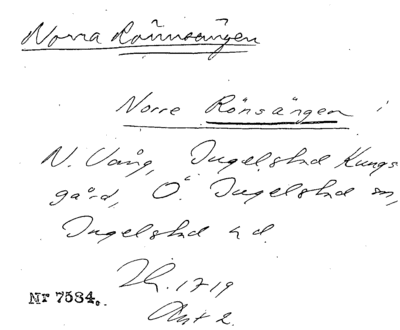 Norra Rönnsängen
Norre Rönsängen i
N. Vång, Ingelstad Kungs
gård, Ö. Ingelstad sn,
Ingelstad hd.
1719
Akt 2.
Nr 7584.